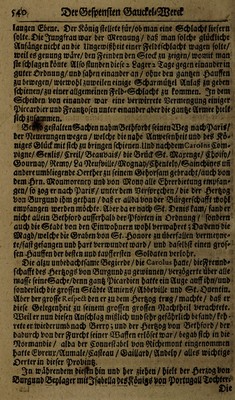 540 Der Gespensten Gauckel-Werck
langen Ebene. Der König stellete für/ ob man eine Schlacht liefern
solte. Die Jungfrau war der Meynung/ daß man solche glückliche
Anfänge nicht an die Ungewißheit einer Feldschlacht wagen solte/
weil es genung wäre/ den Feinden den Spott zu zeigen/ womit man
sie schlagen könte Also stunden diese 2 Läger 2 Tage gegen einander in
guter Ordnung/ und sahen einander an/ ohne den gantzen Hauffen
zu bewegen/ worwohl zuweilen einige Scharmützel Anlaß zu geben
schienen/ zu einer allgemeinen Feld-Schlacht zu kommen. In dem
Schreiben von einander war eine verwirrete Vermengung einiger
Piccarder und Frantzosen unter einander aber die gantze Armee hielt
sich zusammen.
Bey so gestalten Sachen nahm Bethfort seinen Weg nach Paris/
der Neuerungen wegen/ welche die nahe Anwesenheit und des Kö-
niges Glück mit sich zu bringen schienen. Und nachdem Carolus Com-
piegne/ Senlis/ Creil/ Beauvais/ die Brück St. Maxence/ Choisi/
Gournay/ Remy/ la Neufville/ Mognay/ Chantelé/ Saintines und
andere umbliegende Oerther zu seinem Gehorsam gebracht/ auch von
dem Hrn. Mommorancy und von Mouy alle Ehrerbietung empfan-
gen/ so zog er nach Paris/ unter dem Versprechen/ die der Hertzog
von Burgund ihm gethan/ daß er allda von der Bürgerschafft wohl
empfangen werden möchte. Aber da er nach St. Denis kam/ fand er
nicht allein Bethfort ausserhalb der Pforten in Ordnung/ sondern
auch die Stadt von den Einwohnern wohl verwahret. Da denn die
Magd/ welche die Graben von St. Honore da überfallen vermeyn-
te/ fast gefangen und hart verwundet ward/ und daselbst einen gros-
sen Hauffen der besten und tauffersten Soldaten verlohr.
Die allzu unbedachtsame Begierde/ die Carolus hatte/ die Freund-
schafft des Hertzogs von Burgund zu gewinnen/ verzögerte über alle
masse seine Sach/ denn gantz Picardien hatte ein Auge auff ihn/ und
sonderlich die grossen Städte Amiens/ Abbeville und St. Quentin.
Aber der grosse Respect den er zu dem Hertzog trug/ machte/ daß er
diese Gelegenheit zu seinem grossen grossen Nachtheil verachtete.
Weil er nun diesen Anschlag mißlich und sehr gefährlich befand/ keh-
rete er wiederumb nach Berry: und der Hertzog von Bethfort/ der
dadurch von der Furcht seiner Waffen erlöset war/ begab sich in die
Normandie/ alda der Constabel von Richemont eingenommen
hatte Evreux/ Aumale/ Casteau/ Gaillard/ Andely/ alles wichtige
Oerter in dieser Provintz.
In währendem diesem hin und her ziehen/ hielt der Hertzog von
Burgund Beylager mit Isabella des Königs von Portugall Tochter.
Die